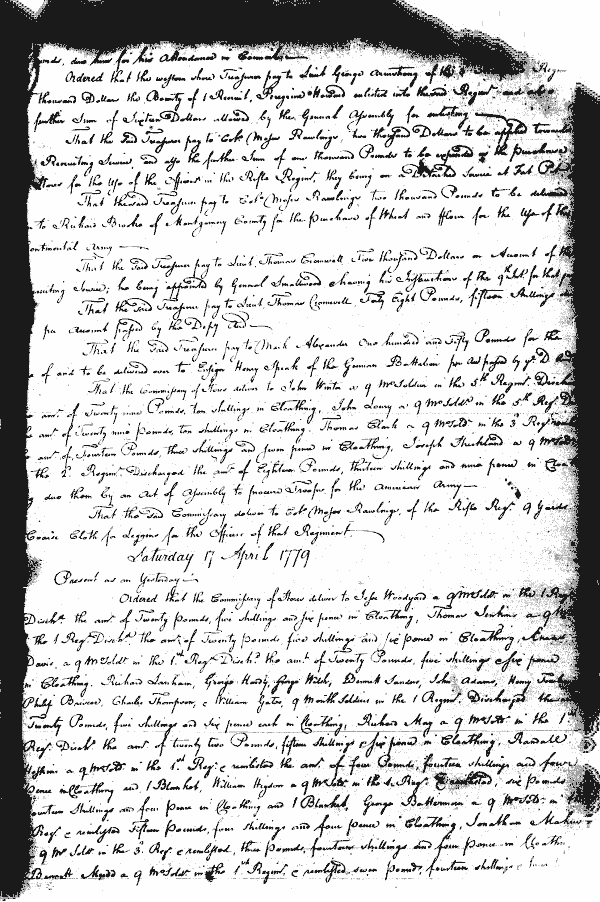 due him for his Attendance in Committee
Ordered that the western shore Treasurer pay to Lieut George Armstrong of the Regim
thousand Dollars the Bounty of 1 Recruit, Peregrine inlisted into the said Regimt and also a
further Sum of Sixteen Dollars allowed by the General Assembly for enlisting
That the said Treasurer pay to Colo Moses Rawlings, two thousand Dollars to be applied towards
Recruiting Service, and also the further Sum of one thousand Pounds to be expended in the purchase
Stores for the Use of the Officers in the Rifle Regimt, they being on Service at Fort Pitt
That the said Treasurer pay to Colo Moses Rawlings two thousand Pounds to be delivered
to Richard Brooke of Montgomery County for the purchase of Wheat and Flour for the Use of the
ontinental Army
That the said Treasurer pay to Lieut. Thomas Cromwell Two thousand Dollars on Account of the
ecruiting Service; he being appointed by General Smallwood shewing his Instructions of the 9th for that p
That the said Treasurer pay to Lieut Thomas Cromwell, Forty Eight Pounds, fifteen Shillings
per Account passed by the Depy Aud
That the said Treasurer pay to Mark Alexander One hundred and Fifty Pounds for the
of and to be delivered over to Ensign Henry Speak of the German Battalion per Act passed by ye D Aud
That the Commissary of Stores deliver to John Winter a 9 Mo Soldier in the 5th Regimt Disch
amt of Twenty nine Pounds, ten shillings in Cloathing, John Loury a 9 Mo Soldr in the 5th Regt D
amt of Twenty nine pounds, ten shillings in Cloathing, Thomas Clark a 9 Mo Soldr in the 3d Regt
amt of Fourteen Pounds, three shillings and seven pence in Cloathing, Joseph Strickland a 9 Mo Soldr
the 2d Regimt Discharged the amt of Eighteen Pounds, thirteen shillings and nine pence in Cloa
due them by an Act of Assembly to procure Troops for the American Army
That the said Commissary deliver to Colo Moses Rawlings, of the Rifle Regt 9 Yards
Coarse Cloth for Leggins for the Officers of that Regiment.
Saturday 17 April 1779
Present as on Yesterday
Ordered that the Commissary of Stores deliver to Jesse Woodyard a 9 Mo Soldr in the 1 Regt
Dischd the amt of Twenty Pounds, five shillings and six pence in Cloathing, Thomas Jenkins a 9 Mo
the 1 Regt Dischd the amt of Twenty Pounds five shillings and six pence in Cloathing,
Davis, a 9 Mo Soldr in the 1st Regt Dischd the amt of Twenty Pounds, five shillings & six pence
in Cloathing. Richard Lanham, George Hardy, George Welch, Bennett Sanders, John Adams, Henry
Philip Briscoe, Charles Thompson, & William Gates, 9 Month Soldiers in the 1 Regimt Discharged the am
Twenty Pounds, five shillings and six pence each in Cloathing, Richard May a 9 Mo Soldr in the 1st
Regt Dischd the amt of twenty two Pounds, fifteen Shillings & six pence in Cloathing, Randall
Hoskins a 9 Mo Soldr in the 1st Regt & reinlisted the amt of four Pounds, fourteen shillings and four
Pence in Cloathing and 1 Blanket, William Higdon a 9 Mo Soldr in the Regt & reinlisted, six Pounds
fourteen Shillings and four pence in Cloathing and 1 Blanket, George Batterman a 9 Mo Soldr in the
Regt & reinlisted Fifteen Pounds, four shillings and four pence in Cloathing, Jonathan
a 9 Mo Soldr in the 3d Regt & reinlisted, three pounds, fourteen shillings and four pence in Cloath
Bennett Mudd a 9 Mo Soldr in the 1st Regimt & reinlisted, seven pounds, fourteen shillings &